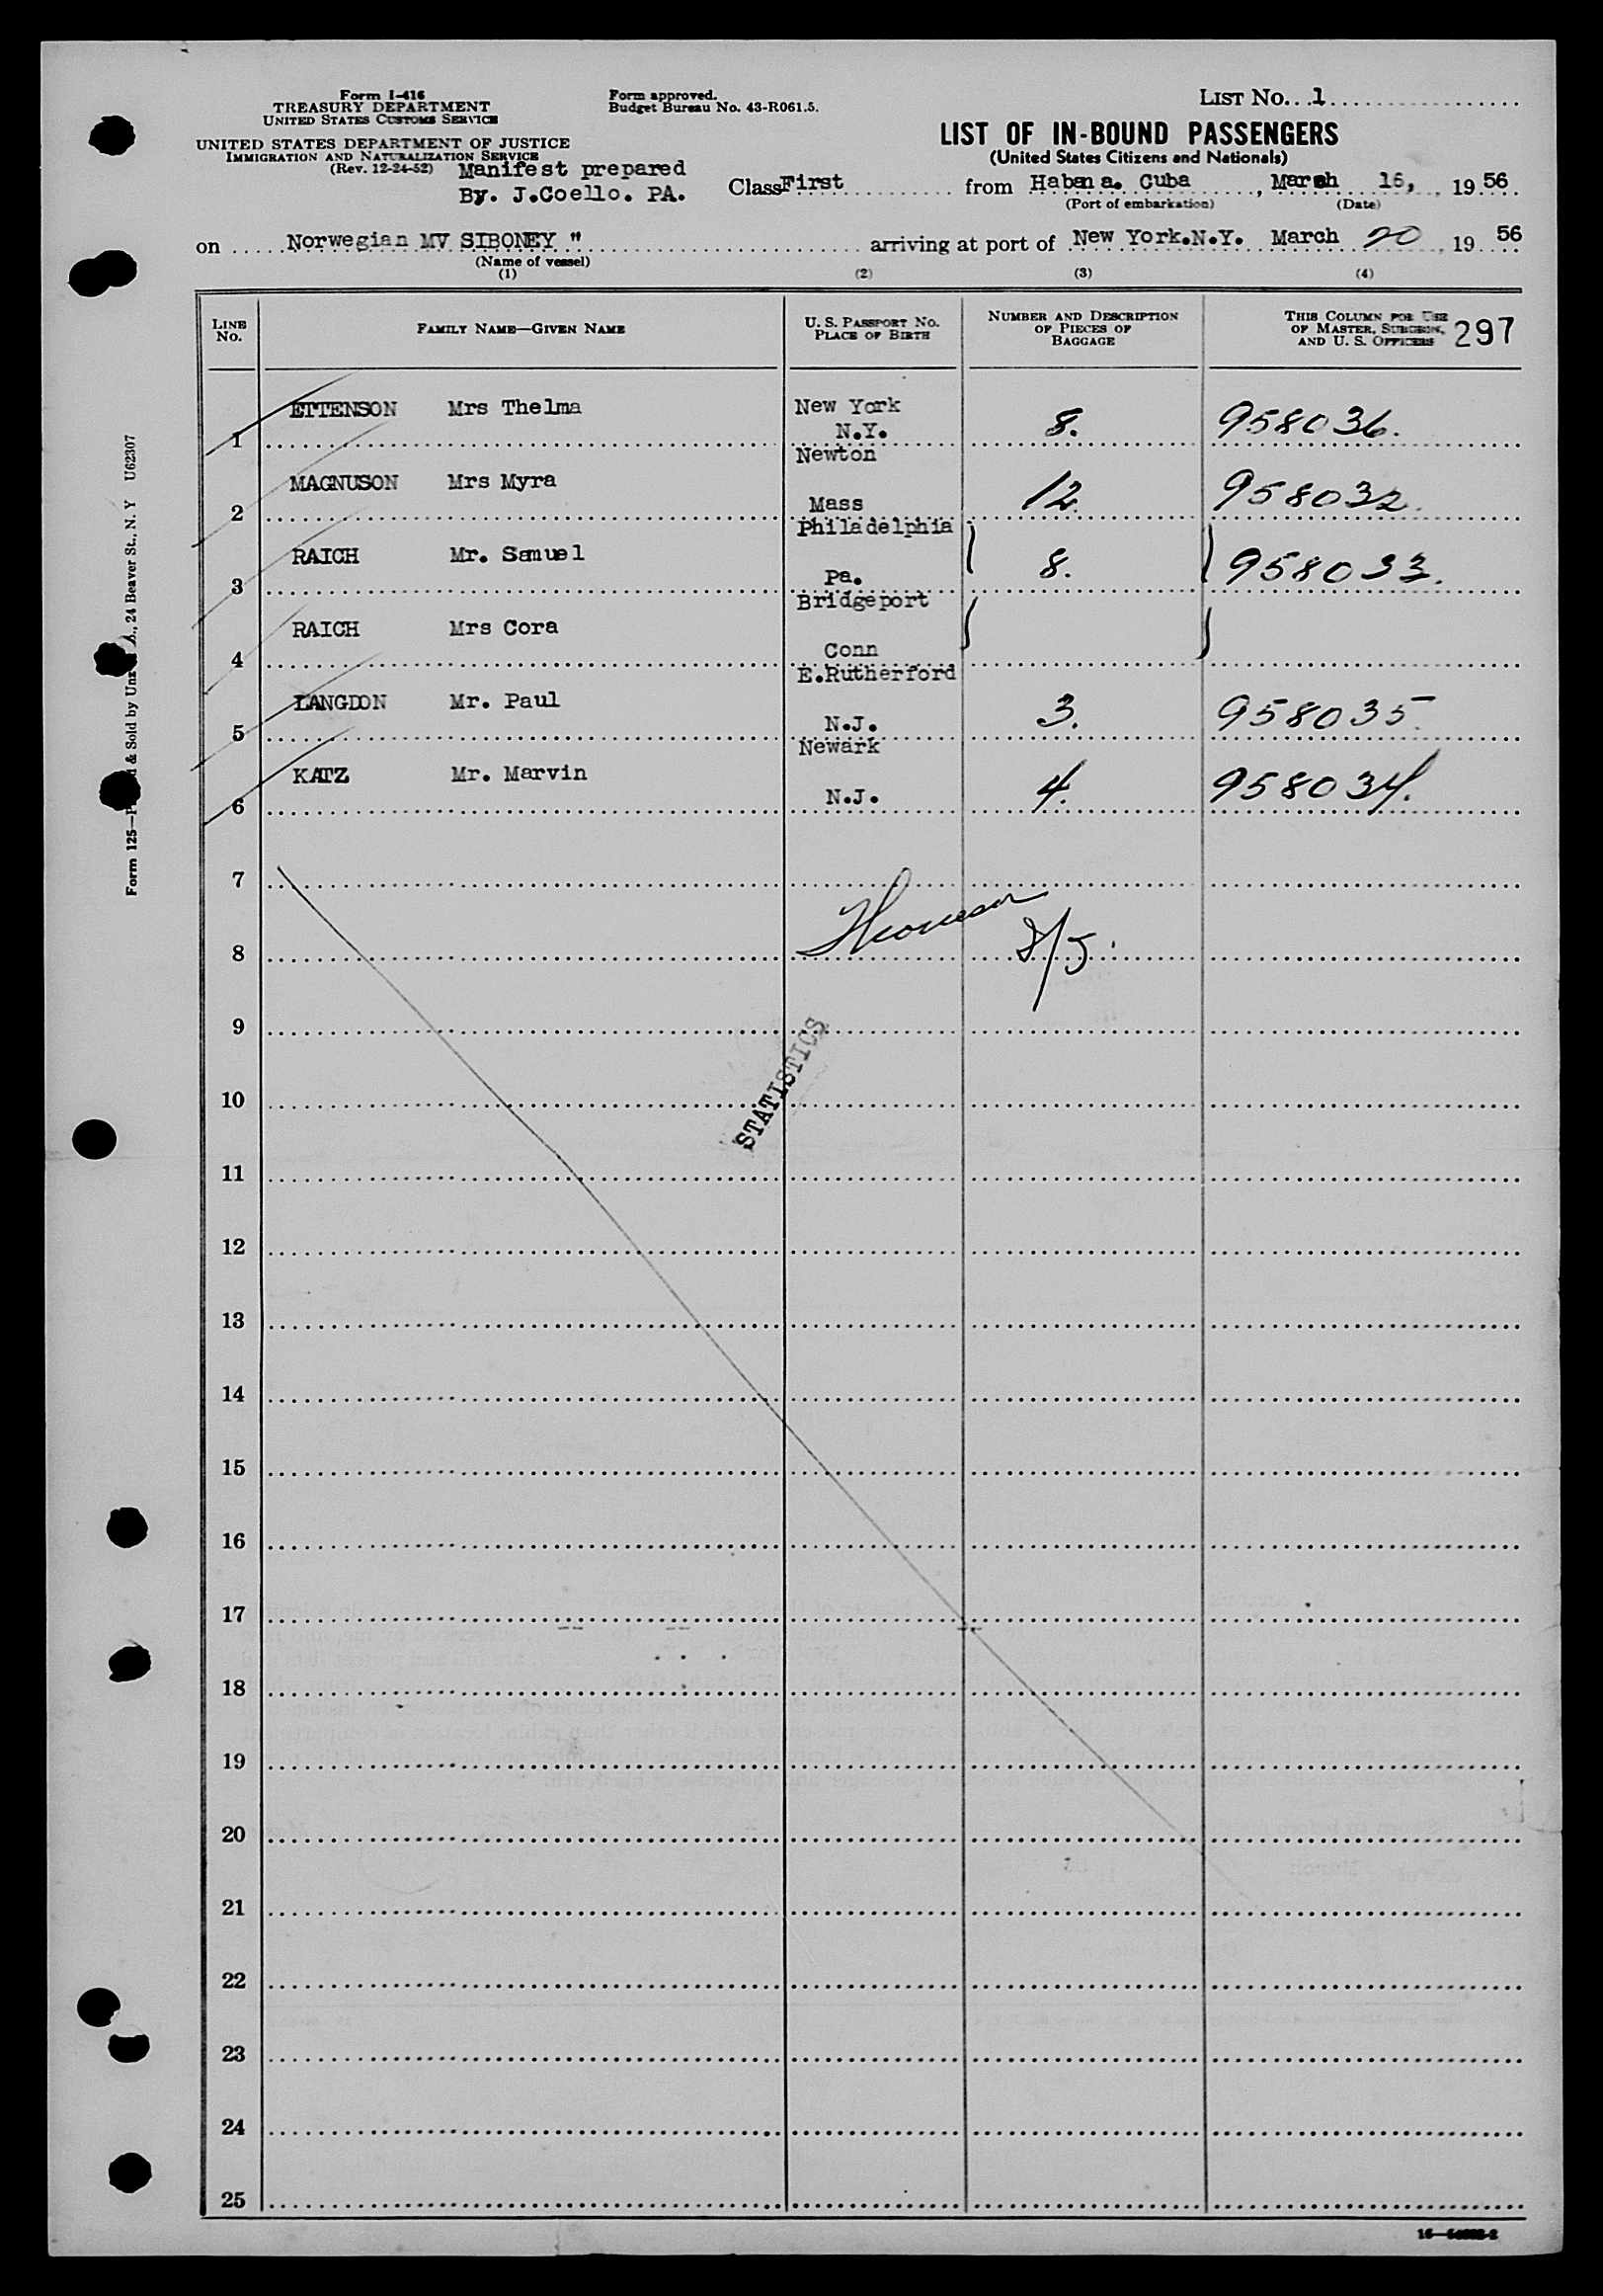 Form I-416
TREASURY DEPARTMENT
UNITED STATES CUSTOMS SERVICE
UNITED STATES DEPARTMENT OF JUSTICE
IMMIGRATION AND NATURALIZATION SERVICE
(Rev. 12-24-52)
Manifest prepared
By. J.Coello. PA.
Form approved.
Budget Bureau No. 43-R061.5.
LIST No. 1
LIST OF IN-BOUND PASSENGERS
(United States Citizens and Nationals)
Class First from Habana. Cuba, March 16, 1956
(Port of embarkation) (Date)
on Norwegian MV SIBONEY " arriving at port of New York.N.Y. March 20, 1956
(Name of vessel)
(1) (2) (3) (4)
LINE No. FAMILY NAME—GIVEN NAME U. S. PASSPORT No. PLACE OF BIRTH NUMBER AND DESCRIPTION OF PIECES OF BAGGAGE THIS COLUMN FOR USE OF MASTER, SURGEON, AND U. S. OFFICERS 297
1 ETTENSON Mrs Thelma New York N.Y. 8. 958036.
2 MAGNUSON Mrs Myra Newton Mass 12. 958032.
3 RAICH Mr. Samuel Philadelphia Pa. 8. 958033.
4 RAICH Mrs Cora Bridgeport Conn
5 LANGDON Mr. Paul E.Rutherford N.J. 3. 958035.
6 KATZ Mr. Marvin Newark N.J. 4. 958034.
7
8
9
STATISTICS
10
11
12
13
14
15
16
17
18
19
20
21
22
23
24
25
Form 125 & Sold by St., 24 Beaver St., N. Y U62307